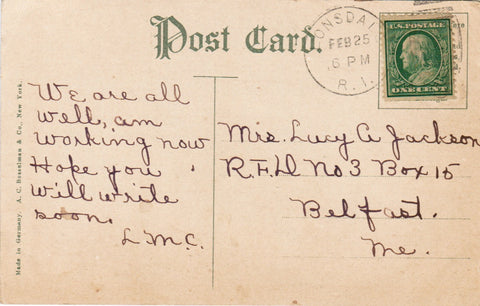 Post Card.
ONSDAL
FEB 25
6 PM
R.I.
U.S. POSTAGE
ONE CENT
We are all
well, am
working now
Hope you
will write
soon.
L.M.C.
Mrs. Lucy A Jackson
R.F.D No 3 Box 15
Belfast.
Me.
Made in Germany. A. C. Bosselman & Co., New York.